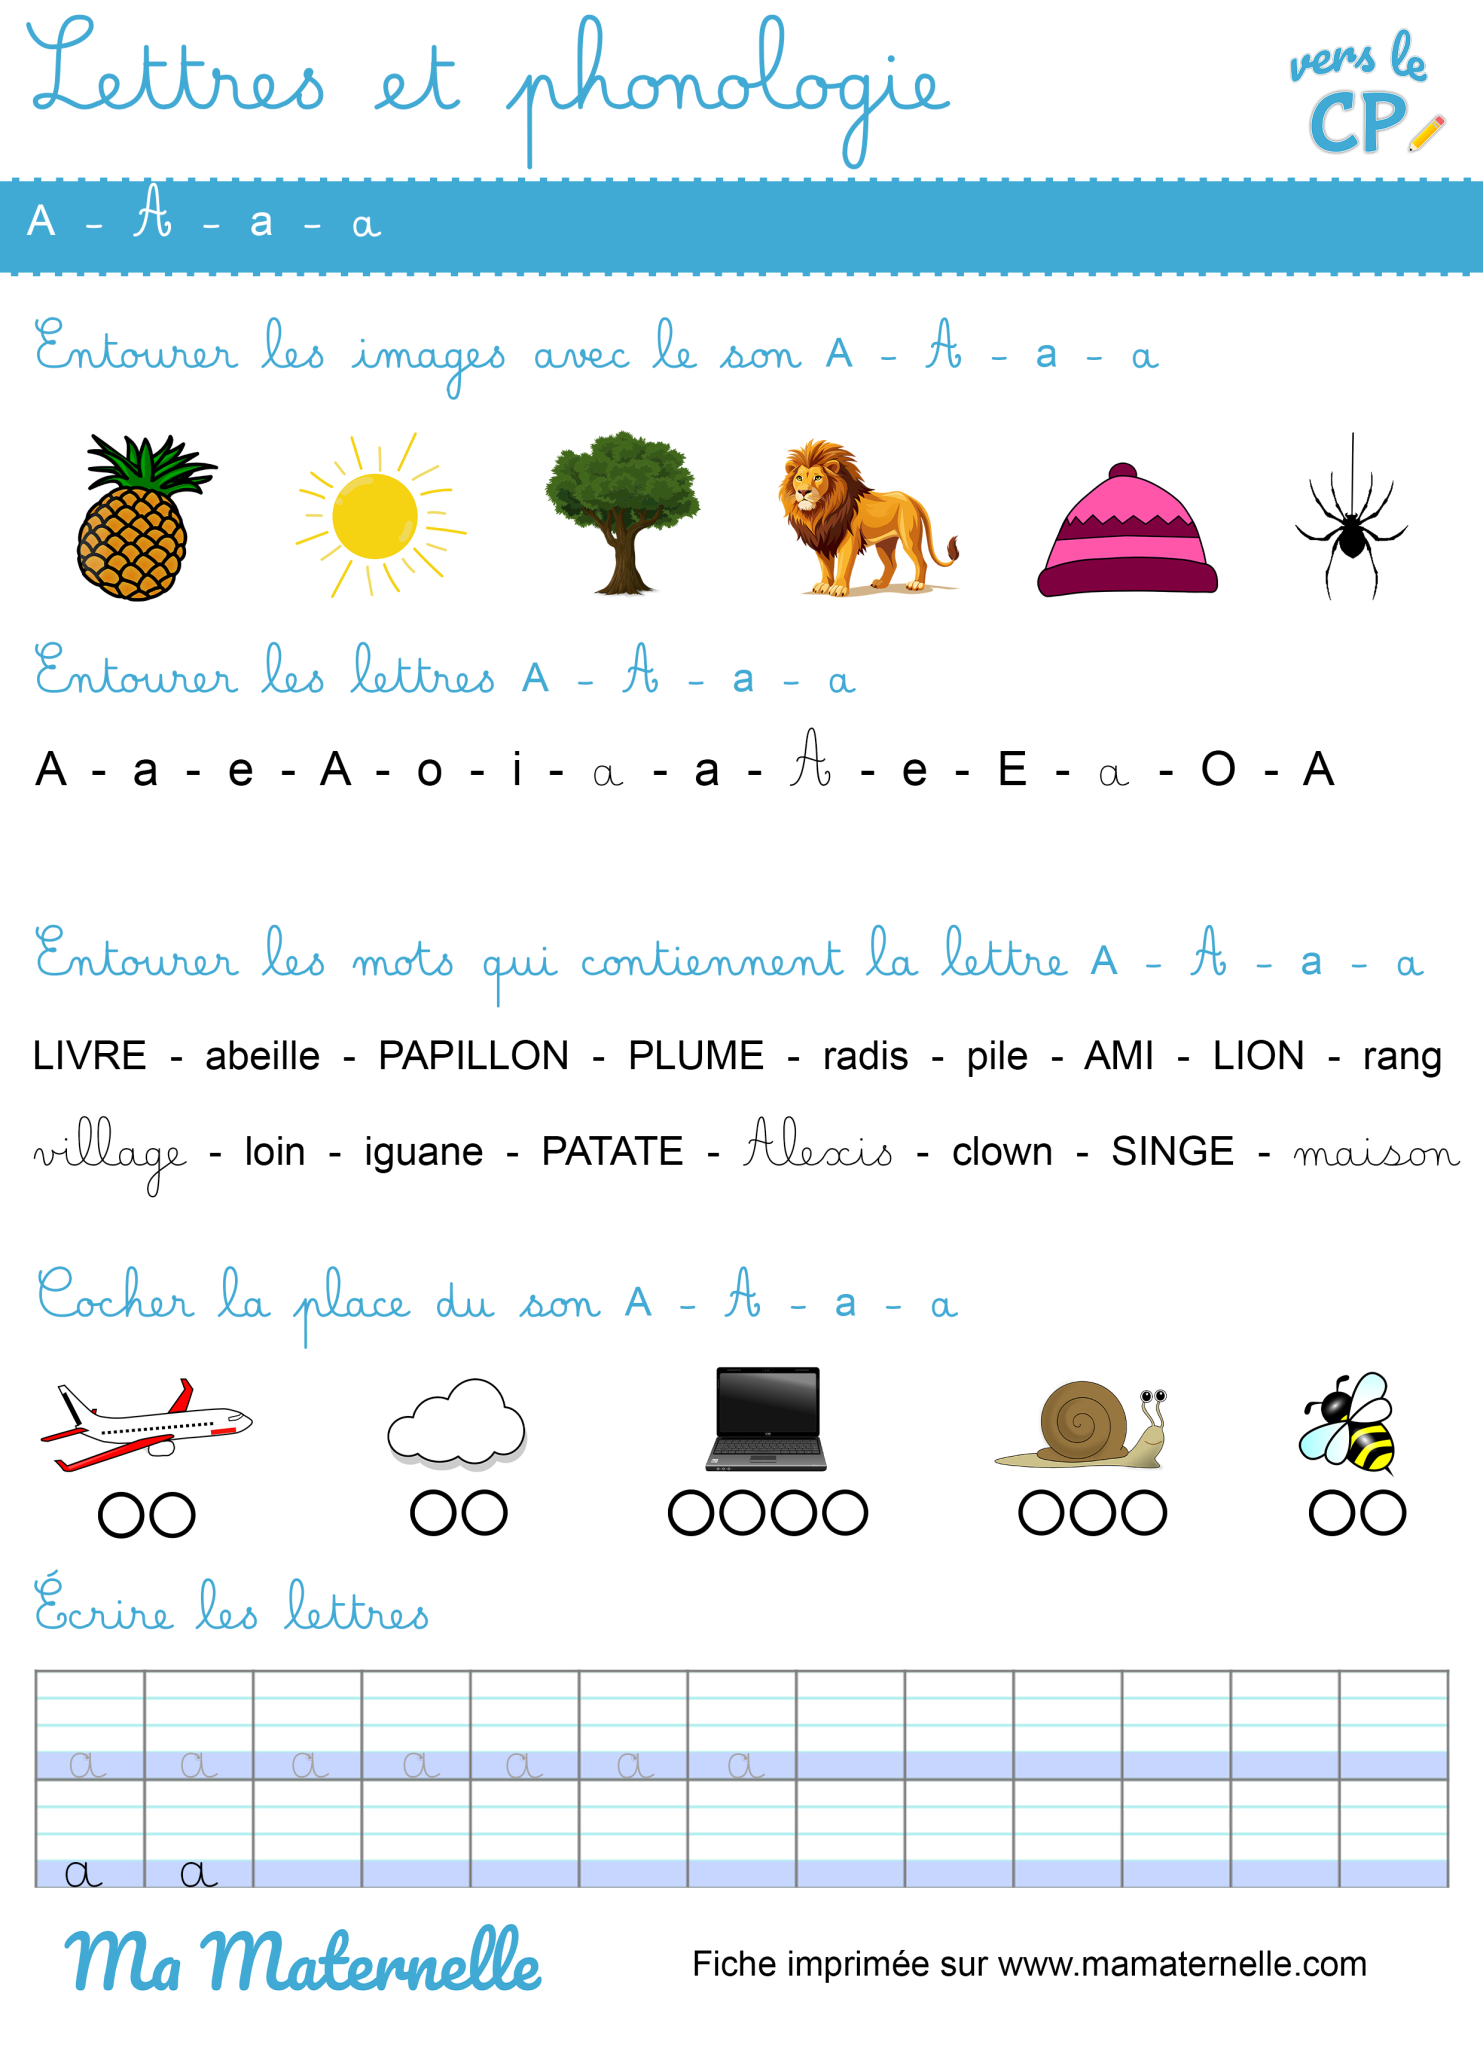 Lettres et phonologie
vers le
CP
A - A - a - a
Entourer les images avec le son A - A - a - a
Entourer les lettres A - A - a - a
A - a - e - A - o - i - a - a - A - e - E - a - O - A
Entourer les mots qui contiennent la lettre A - A - a - a
LIVRE - abeille - PAPILLON - PLUME - radis - pile - AMI - LION - rang
village - loin - iguane - PATATE - Alexis - clown - SINGE - maison
Cocher la place du son A - A - a - a
Écrire les lettres
a a a a a a a
a a
Ma Maternelle
Fiche imprimée sur www.mamaternelle.com